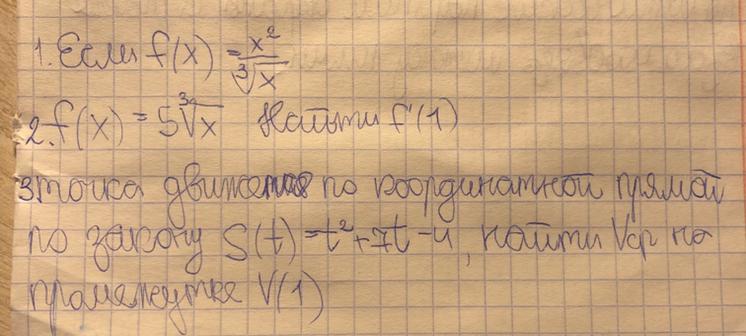 1. Если f(x) = x²/∛x
2. f(x) = 5∛x Найти f'(1)
3 точка движется по координатной прямой
по закону S(t) = t² + 7t - 4, найти Vср на
промежутке V(1)